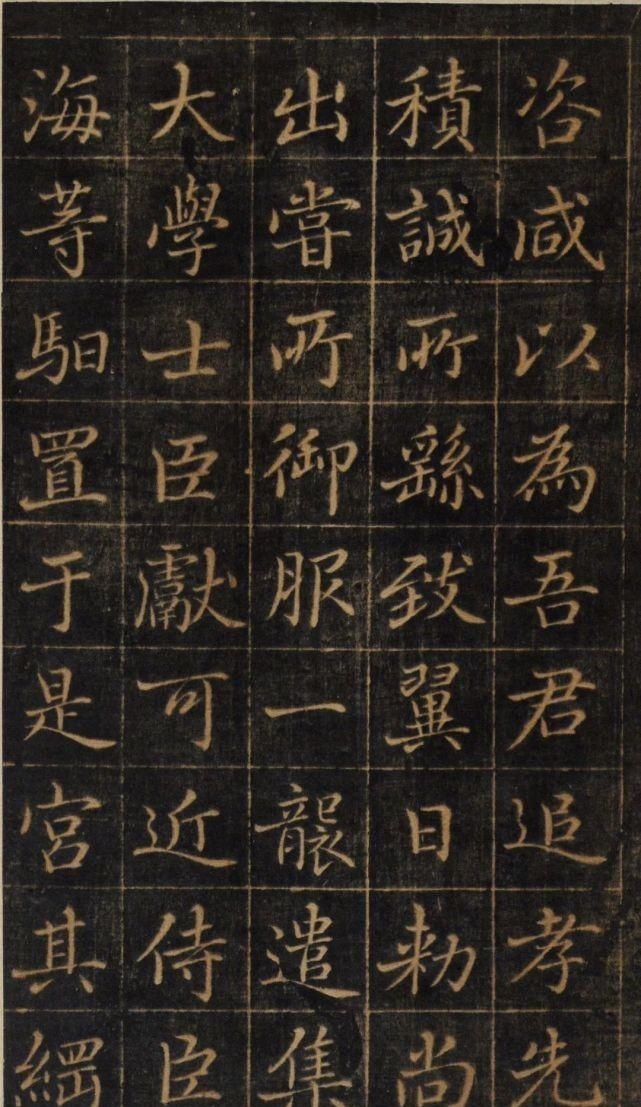 咨咸以為吾君追孝先
積誠所繇致翼日勑尚
出嘗所御服一襲遣集
大學士臣獻可近侍臣
海等馹置于是宮其綱